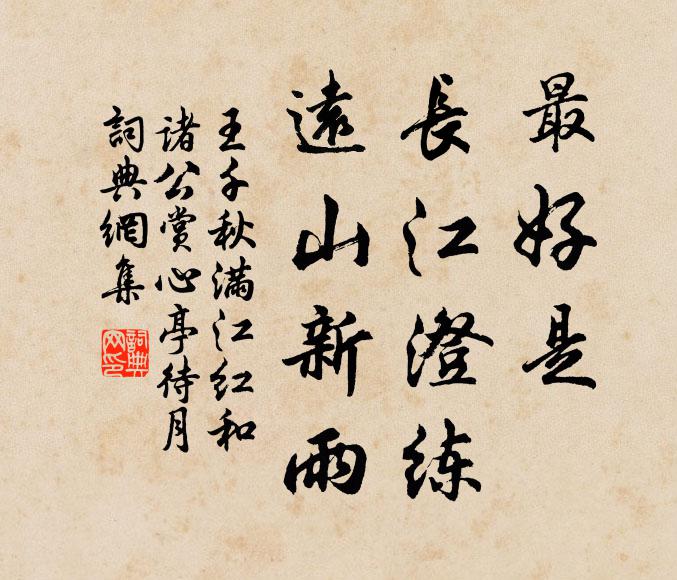 最好是
長江澄练
遠山新雨
王千秋满江红和
诸公赏心亭待月
詞典網集
詞典
网印